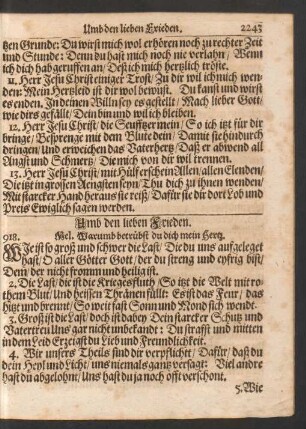 Umb den lieben Frieden. 2243
tzen Grunde: Du wirst mich wol erhören noch zu rechter Zeit
und Stunde: Denn du hast mich noch nie verlahn/ Wenn
ich dich hab geruffen an/ Deß ich mich hertzlich tröste.
11. Herr Jesu Christ einiger Trost/ Zu dir wil ich mich wen-
den: Mein Hertzleid ist dir wol bewust. Du kanst und wirst
es enden. In deinen Willn sey es gestellt/ Mach lieber Gott/
wie dirs gefällt/ Dein bin und wil ich bleiben.
12. Herr Jesu Christ/ die Seufftzer mein/ So ich itzt für dir
bringe/ Besprenge mit dem Blute dein/ Damit sie hindurch
dringen/ Und erweichen das Vaterhertz/ Daß er abwend all
Angst und Schmertz/ Die mich von dir wil trennen.
13. Herr Jesu Christ/ mit Hülff erschein Allen/ allen Elenden/
Die itzt in grossen Aengsten seyn/ Thu dich zu ihnen wenden/
Mit starcker Hand heraus sie reiß/ Dafür sie dir dort Lob und
Preis Ewiglich sagen werden.
Umb den lieben Frieden.
918. Mel. Warumb betrübst du dich mein Hertz.
WJe ist so groß und schwer die Last/ Die du uns auffgeleget
hast/ O aller Götter Gott/ der du streng und eyfrig bist/
Dem/ der nicht fromm und heilig ist.
2. Die Last/ die ist die Kriegesfluth/ So itzt die Welt mit ro-
them Blut/ Und heissen Thränen füllt: Es ist das Feur/ das
hitzt und brennt/ So weit fast Sonn und Mond sich wendt.
3. Groß ist die Last/ doch ist dabey Dein starcker Schutz und
Vatertreu Uns gar nicht unbekandt: Du straffst und mitten
in dem Leid Erzeigst du Lieb und Freundlichkeit.
4. Wir unsers Theils sind dir verpflicht/ Dafür/ daß du
dein Heyl und Licht/ uns niemals gantz versagt: Viel andre
hast du abgelohnt/ Uns hast du ja noch offt verschont.
5. Wie